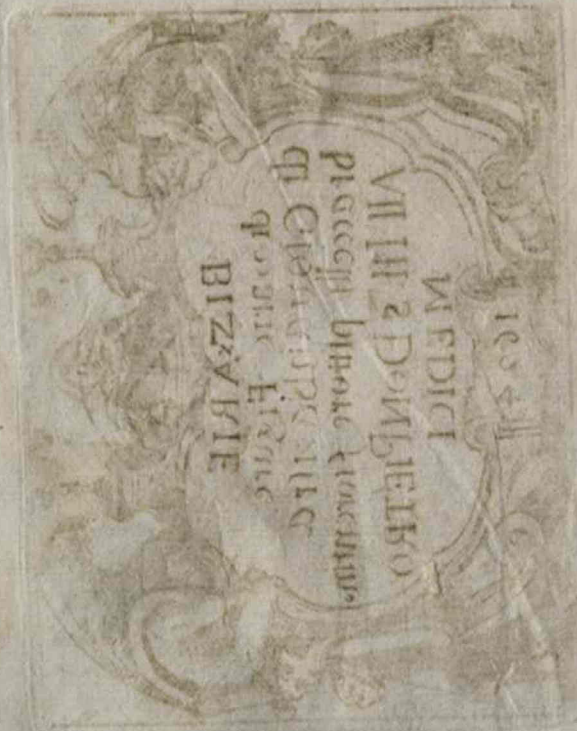 BIZZARIE
di varie Figure
di Giouanbatista
braccelli pittore fiorentino
All Ill S Don PIETRO
MEDICI
1624